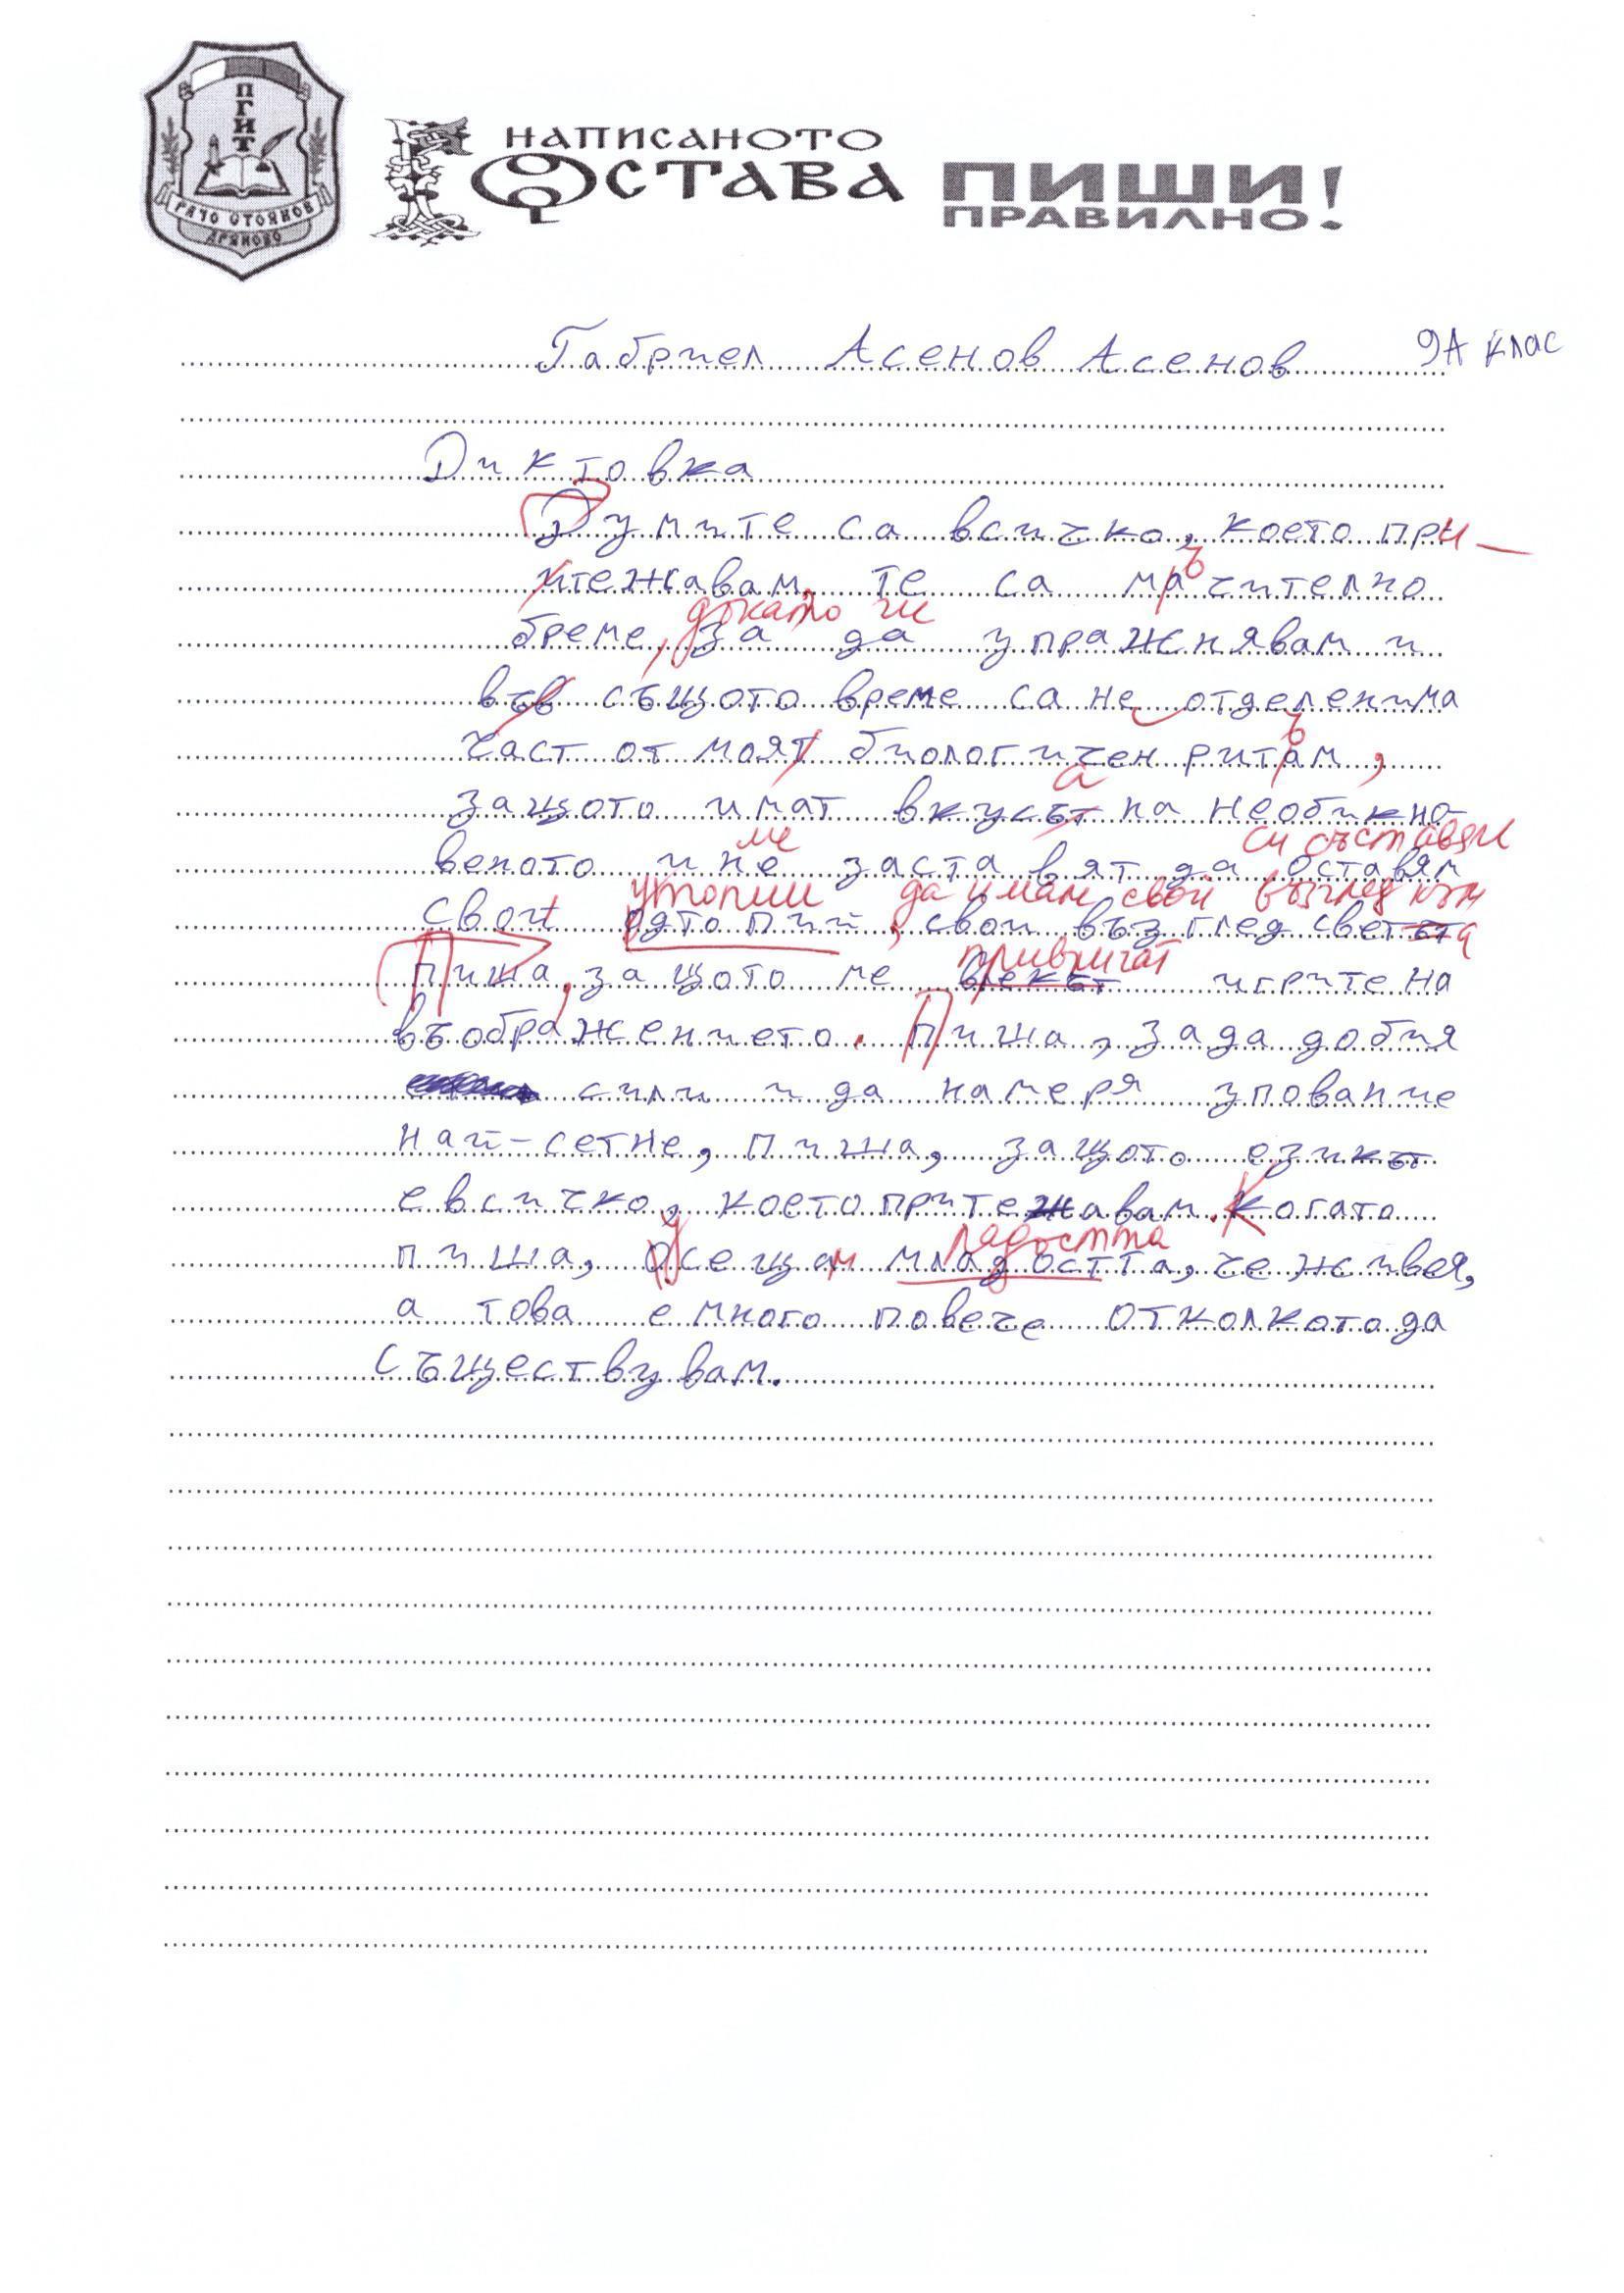 ПГИТ
РАЧО СТОЯНОВ
ДРЯНОВО
НАПИСАНОТО
ОСТАВА
ПИШИ
ПРАВИЛНО!
Габриел Асенов Асенов 9А клас
Диктовка
Думите са всичко, което при-
итежавам, те са мрачително
ъ
докато ги
бреме, за да упражнявам и
във същото време са не отделенима
част от моят биологичен ритам,
ъ
а
защото имат вкусът на необикно-
ме си съставям
веното и не заставят да оставям
утопии да имам свой възглед към
свои одтопий, свои възглед светът
а
привличат
Пиша, защото ме влекът игрите на
въображението. Пиша, за да добия
сили и да намеря упование
най-сетне, пиша, защото езикът
е всичко, което притежавам. Когато
у радостта
пиша, осещам младостта, че живея,
а това е много повече отколкото да
съществувам.